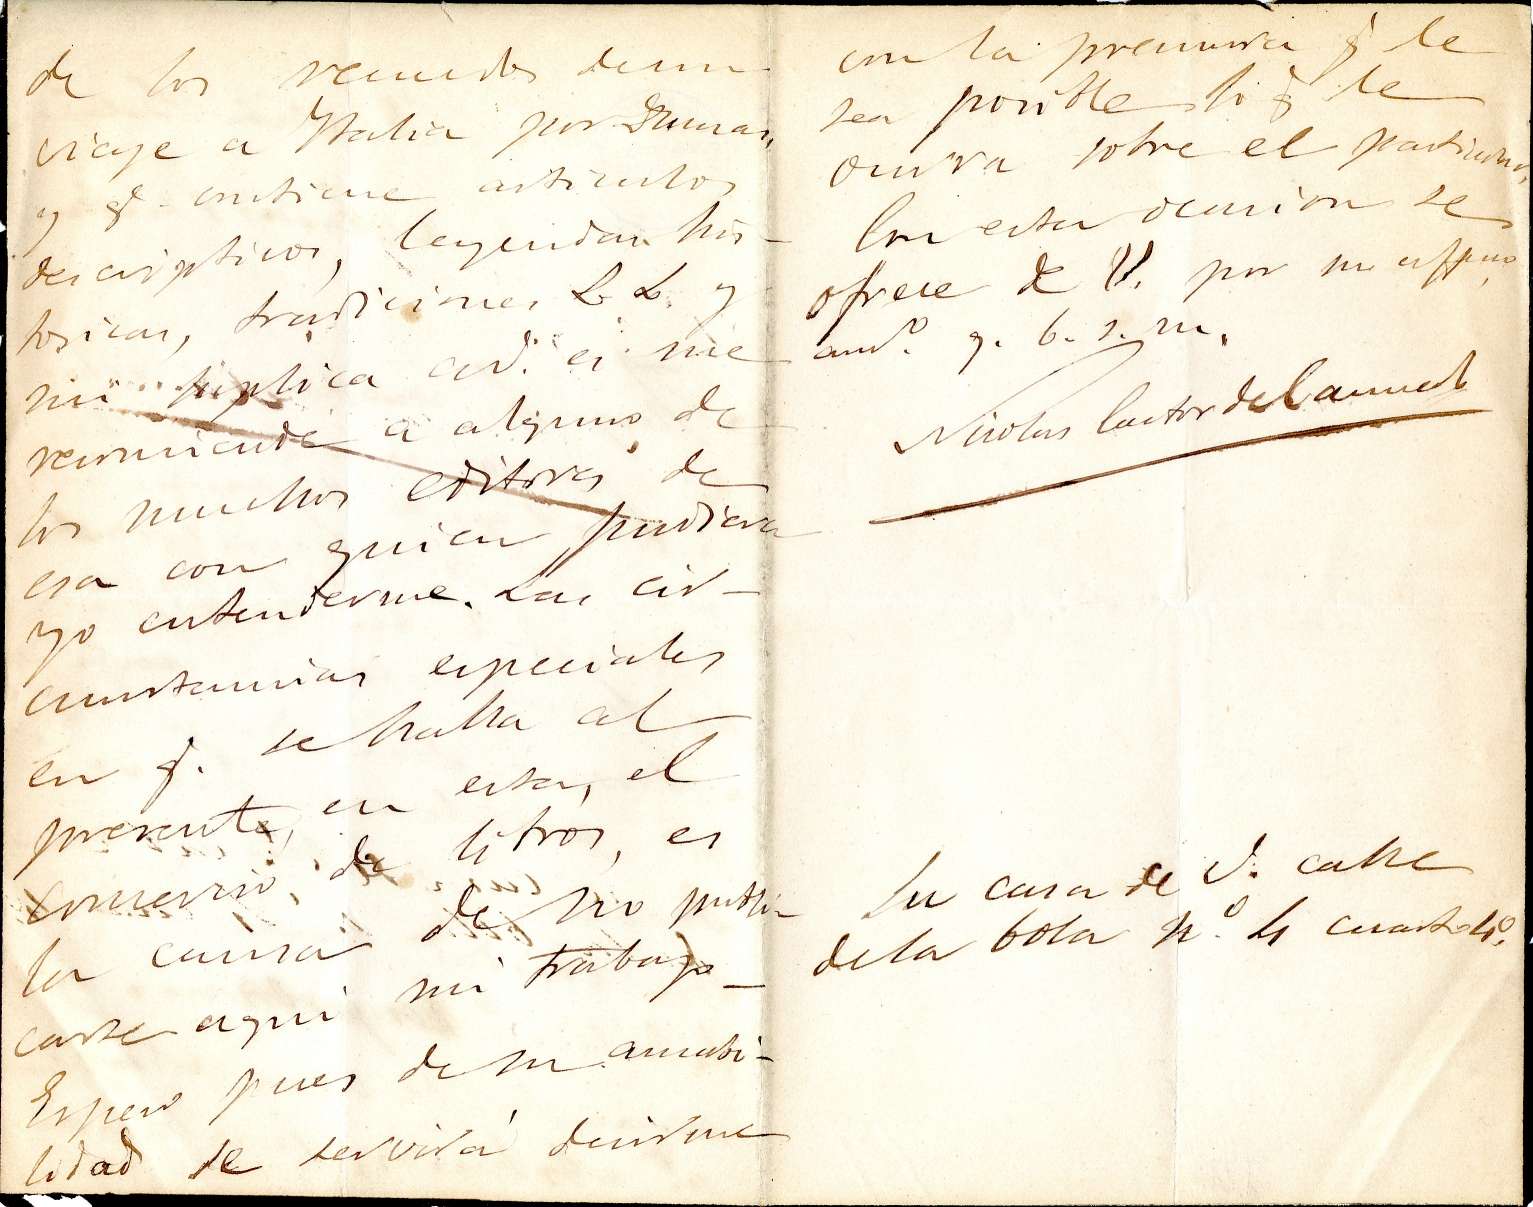 de los recuerdos de un
viaje a Italia por Dumas,
y q. contiene articulos
descriptivos, leyendas his-
toricas, tradiciones &. &. y
mi suplica a V. es me
recomiende a alguno de
los muchos editores de
esa con quien pudiera
yo entenderme. Las cir-
cunstancias especiales
en q. se halla al
presente, en esta, el
comercio de libros, es
la causa de no publi-
carse aqui mi trabajo_
Espero pues de su amabi-
lidad se servirá decirme
con la premura q. le
sea posible lo q. le
ocurra sobre el particular,
Con esta ocasion se
ofrece de V. por su affmo.
amº. q. b. s. m.
Nicolas Castor de Caunedo
Su casa de V. calle
de la bola nº. 4 cuarto 4º.